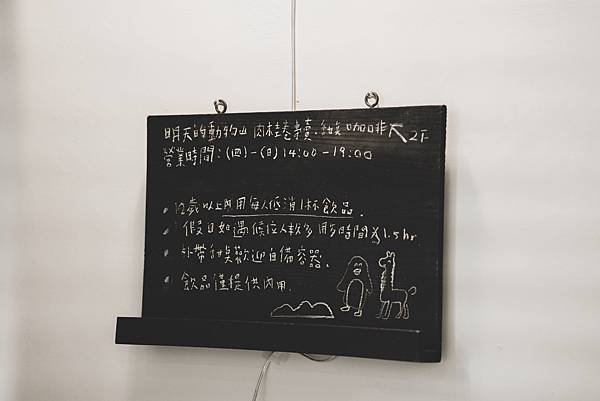 明天的動物山 肉桂捲專賣.甜美咖啡 2F
營業時間:(四)-(日)14:00-19:00
12歲以上內用每人低消1杯飲品.
假日如遇候位人數多 用餐時間為1.5hr
外帶甜點歡迎自備容器.
飲品僅提供內用.